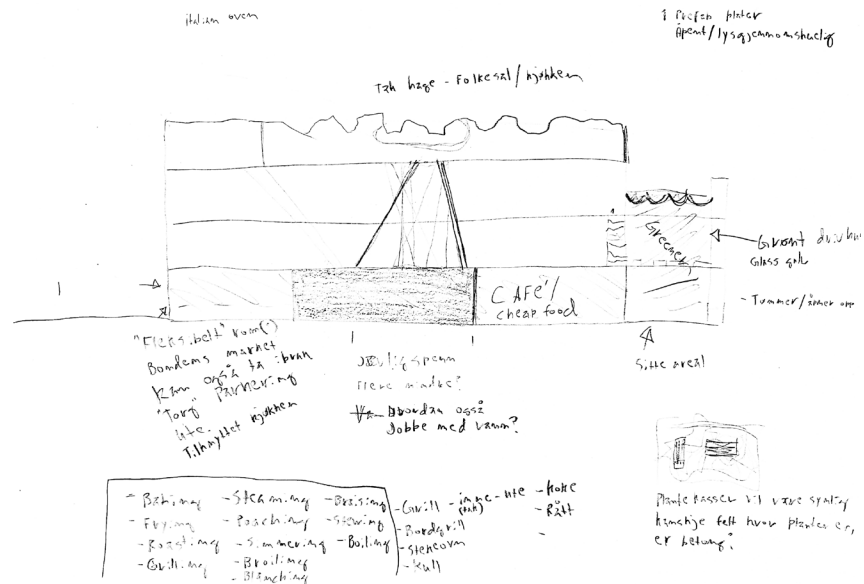 italian oven
↑ Prefab plater
Åpent/lysgjennomskuelig
Tak hage - Folkesal/kjøkken
Greenery
Grønt drivhus
Glass
CAFE'/
cheap food
- Tømmer/
Sitte areal
"Fleksibelt" rom(?)
Bondens market
Kan også ta ibruk
"Torg" Parkering
ute.
Tilknyttet kjøkken
Flere mindre?
Hvordan også
Jobbe med vann?
- Baking
- Frying
- Roasting
- Grilling
- Steaming
- Poaching
- Simmering
- Broiling
- Blanching
- Braising
- Stewing
- Boiling
- Grill - inne - ute
- Bordgrill
- Steinovn
- Kull
- Koke
- Rått
Plante kasser vil være synlig
kanskje felt hvor planter er,
er betong?